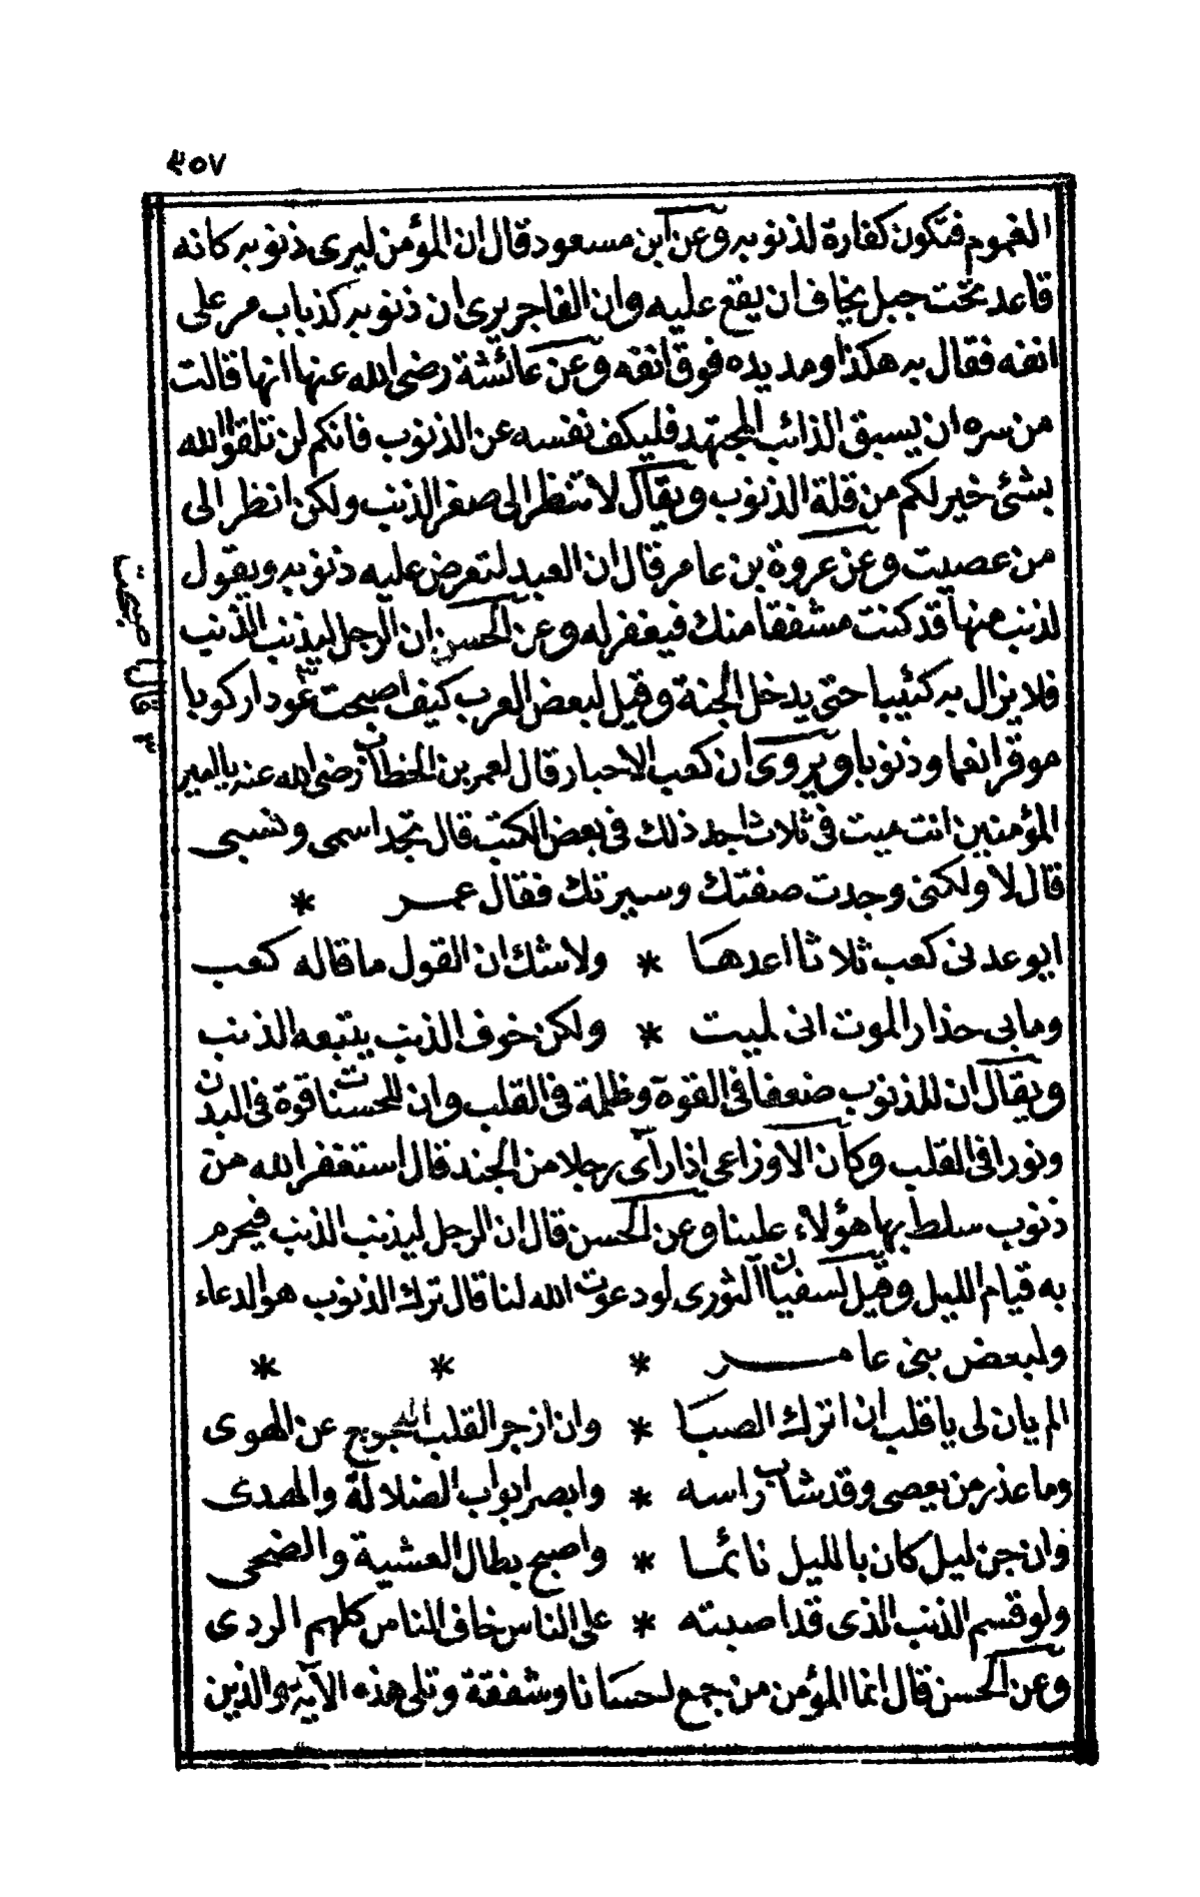 ٤٥٧
الغموم فتكون كفارة لذنوبه وعن ابن مسعود قال ان المؤمن ليرى ذنوبه كانه
قاعد تحت جبل يخاف ان يقع عليه وان الفاجر يرى ان ذنوبه كذباب مر على
انفه فقال به هكذا ومد يده فوق انفه وعن عائشة رضى الله عنها انها قالت
من سره ان يسبق الذائب المجتهد فليكف نفسه عن الذنوب فانكم لن تلقوا الله
بشئ خير لكم من قلة الذنوب ويقال لا تنظر الى صغر الذنب ولكن انظر الى
من عصيت وعن عروة بن عامر قال ان العبد لتعرض عليه ذنوبه ويقول
لذنب منها قد كنت مشفقا منك فيغفر له وعن الحسن ان الرجل ليذنب الذنب
فلا يزال به كئيبا حتى يدخل الجنة وقيل لبعض العرب كيف اصبحت ٣ غود اركوبا
موقرا نعما وذنوبا ويروى ان كعب الاحبار قال لعمر بن الخطاب رضى الله عنه يا امير
المؤمنين انت ميت فى ثلاث اجد ذلك فى بعض الكتب قال تجد اسمى ونسبى
قال لا ولكنى وجدت صفتك وسيرتك فقال عمر *
ايوعدنى كعب ثلاثا اعدها * ولا شك ان القول ما قاله كعب
وما بى حذار الموت انى لميت * ولكن خوف الذنب يتبعه الذنب
ويقال ان للذنوب ضعفا فى القوة وظلمة فى القلب وان للحسنات قوة فى البدن
ونورا فى القلب وكان الاوزاعى اذا رآى رجلا من الجند قال استغفر الله من
ذنوب سلط بها هؤلاء علينا وعن الحسن قال ان الرجل ليذنب الذنب فيحرم
به قيام الليل وقيل لسفيان الثورى لو دعوت الله لنا قال ترك الذنوب هو الدعاء
ولبعض بنى عامر * * *
الم يان لى يا قلب ان اترك الصبا * وان ازجر القلب اللجوج عن الهوى
وما عذر من يعصى وقد شاب راسه * وابصر ابواب الضلالة والهدى
وان جن ليل كان بالليل نائما * واصبح بطال العشية والضحى
ولو قسم الذنب الذى قد اصبته * على الناس خاف الناس كلهم الردى
وعن الحسن قال انما المؤمن من جمع احسانا وشفقة وتلى هذه الآية والذين
٣ قال اصبحت